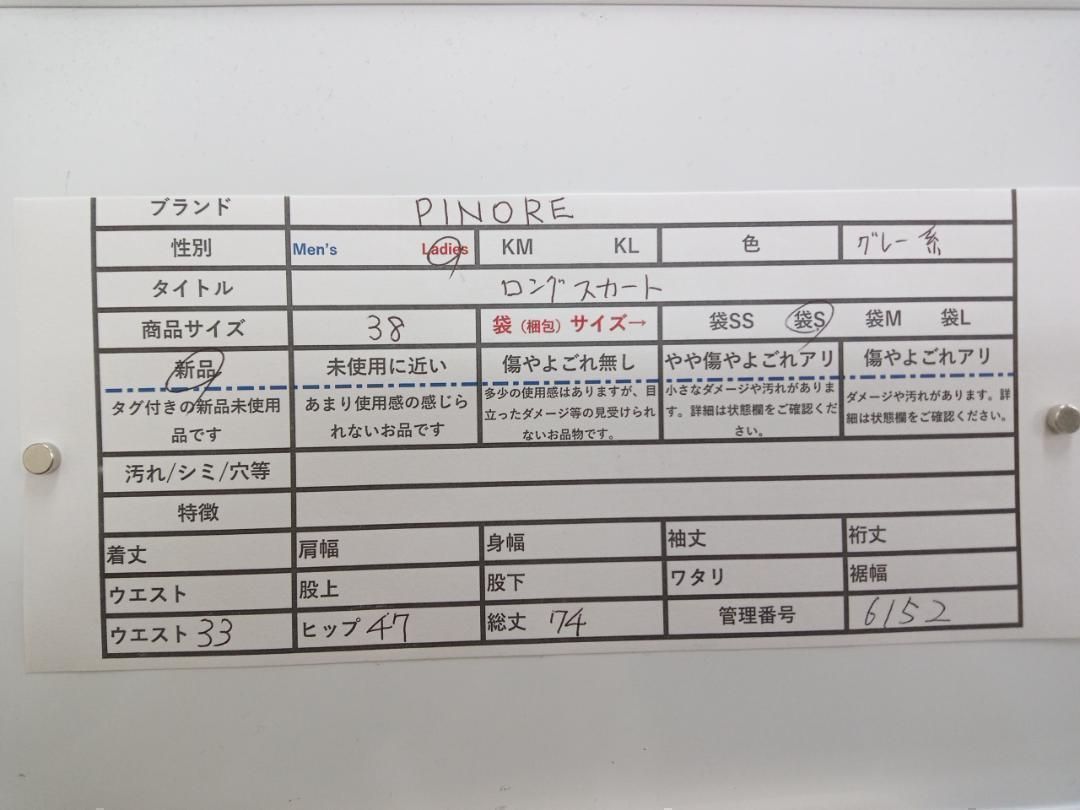 ブランド PINORE
性別 Men's Ladies KM KL 色 グレー系
タイトル ロングスカート
商品サイズ 38 袋（梱包）サイズ→ 袋SS 袋S 袋M 袋L
新品 未使用に近い 傷やよごれ無し やや傷やよごれアリ 傷やよごれアリ
タグ付きの新品未使用
品です
あまり使用感の感じら
れないお品です
多少の使用感はありますが、目
立ったダメージ等の見受けられ
ないお品物です。
小さなダメージや汚れがありま
す。詳細は状態欄をご確認くだ
さい。
ダメージや汚れがあります。詳
細は状態欄をご確認ください。
汚れ/シミ/穴等
特徴
着丈 肩幅 身幅 袖丈 裄丈
ウエスト 股上 股下 ワタリ 裾幅
ウエスト 33 ヒップ 47 総丈 74 管理番号 6152